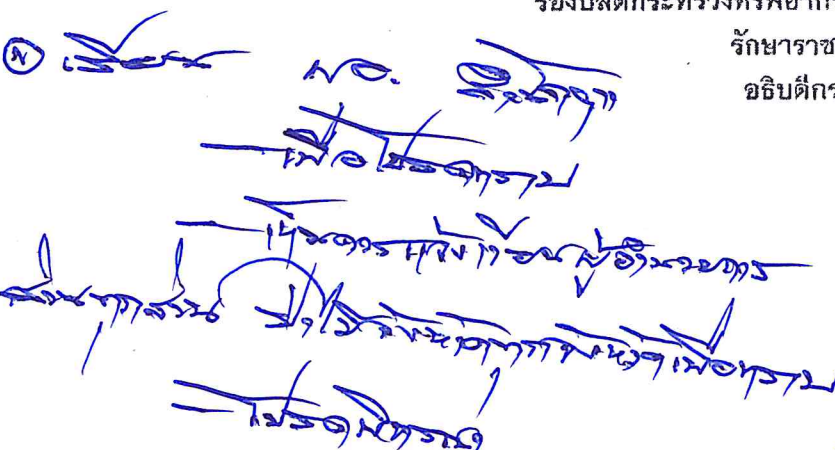 รองปลัดกระทรวงทรัพยาก
รักษาราช
อธิบดีกร
เรียน ผอ.
- เพื่อโปรดทราบ
- เห็นควรแจ้งเวียนผู้อำนวยการ
ส่วนทุกส่วน ป่าไม้จังหวัดทุกจังหวัดเพื่อทราบ
- โปรดพิจารณา